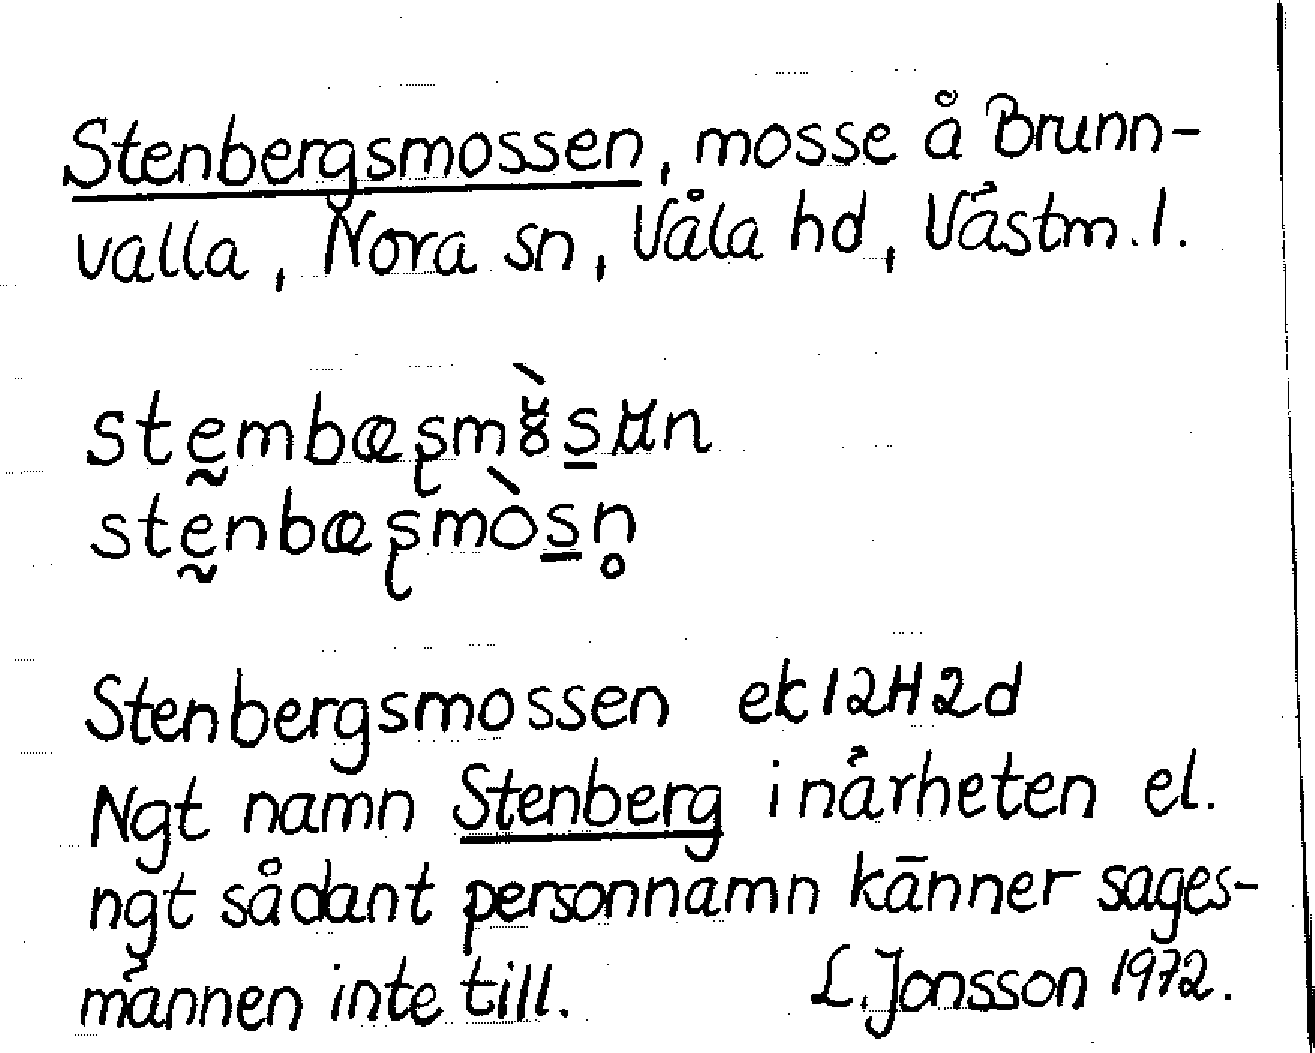 Stenbergsmossen, mosse å Brunn-
valla, Nora sn, Våla hd, Västm.l.
Stenbergsmossen ek 12H2d
Ngt namn Stenberg i närheten el.
ngt sådant personnamn känner sages-
männen inte till. L. Jonsson 1972.